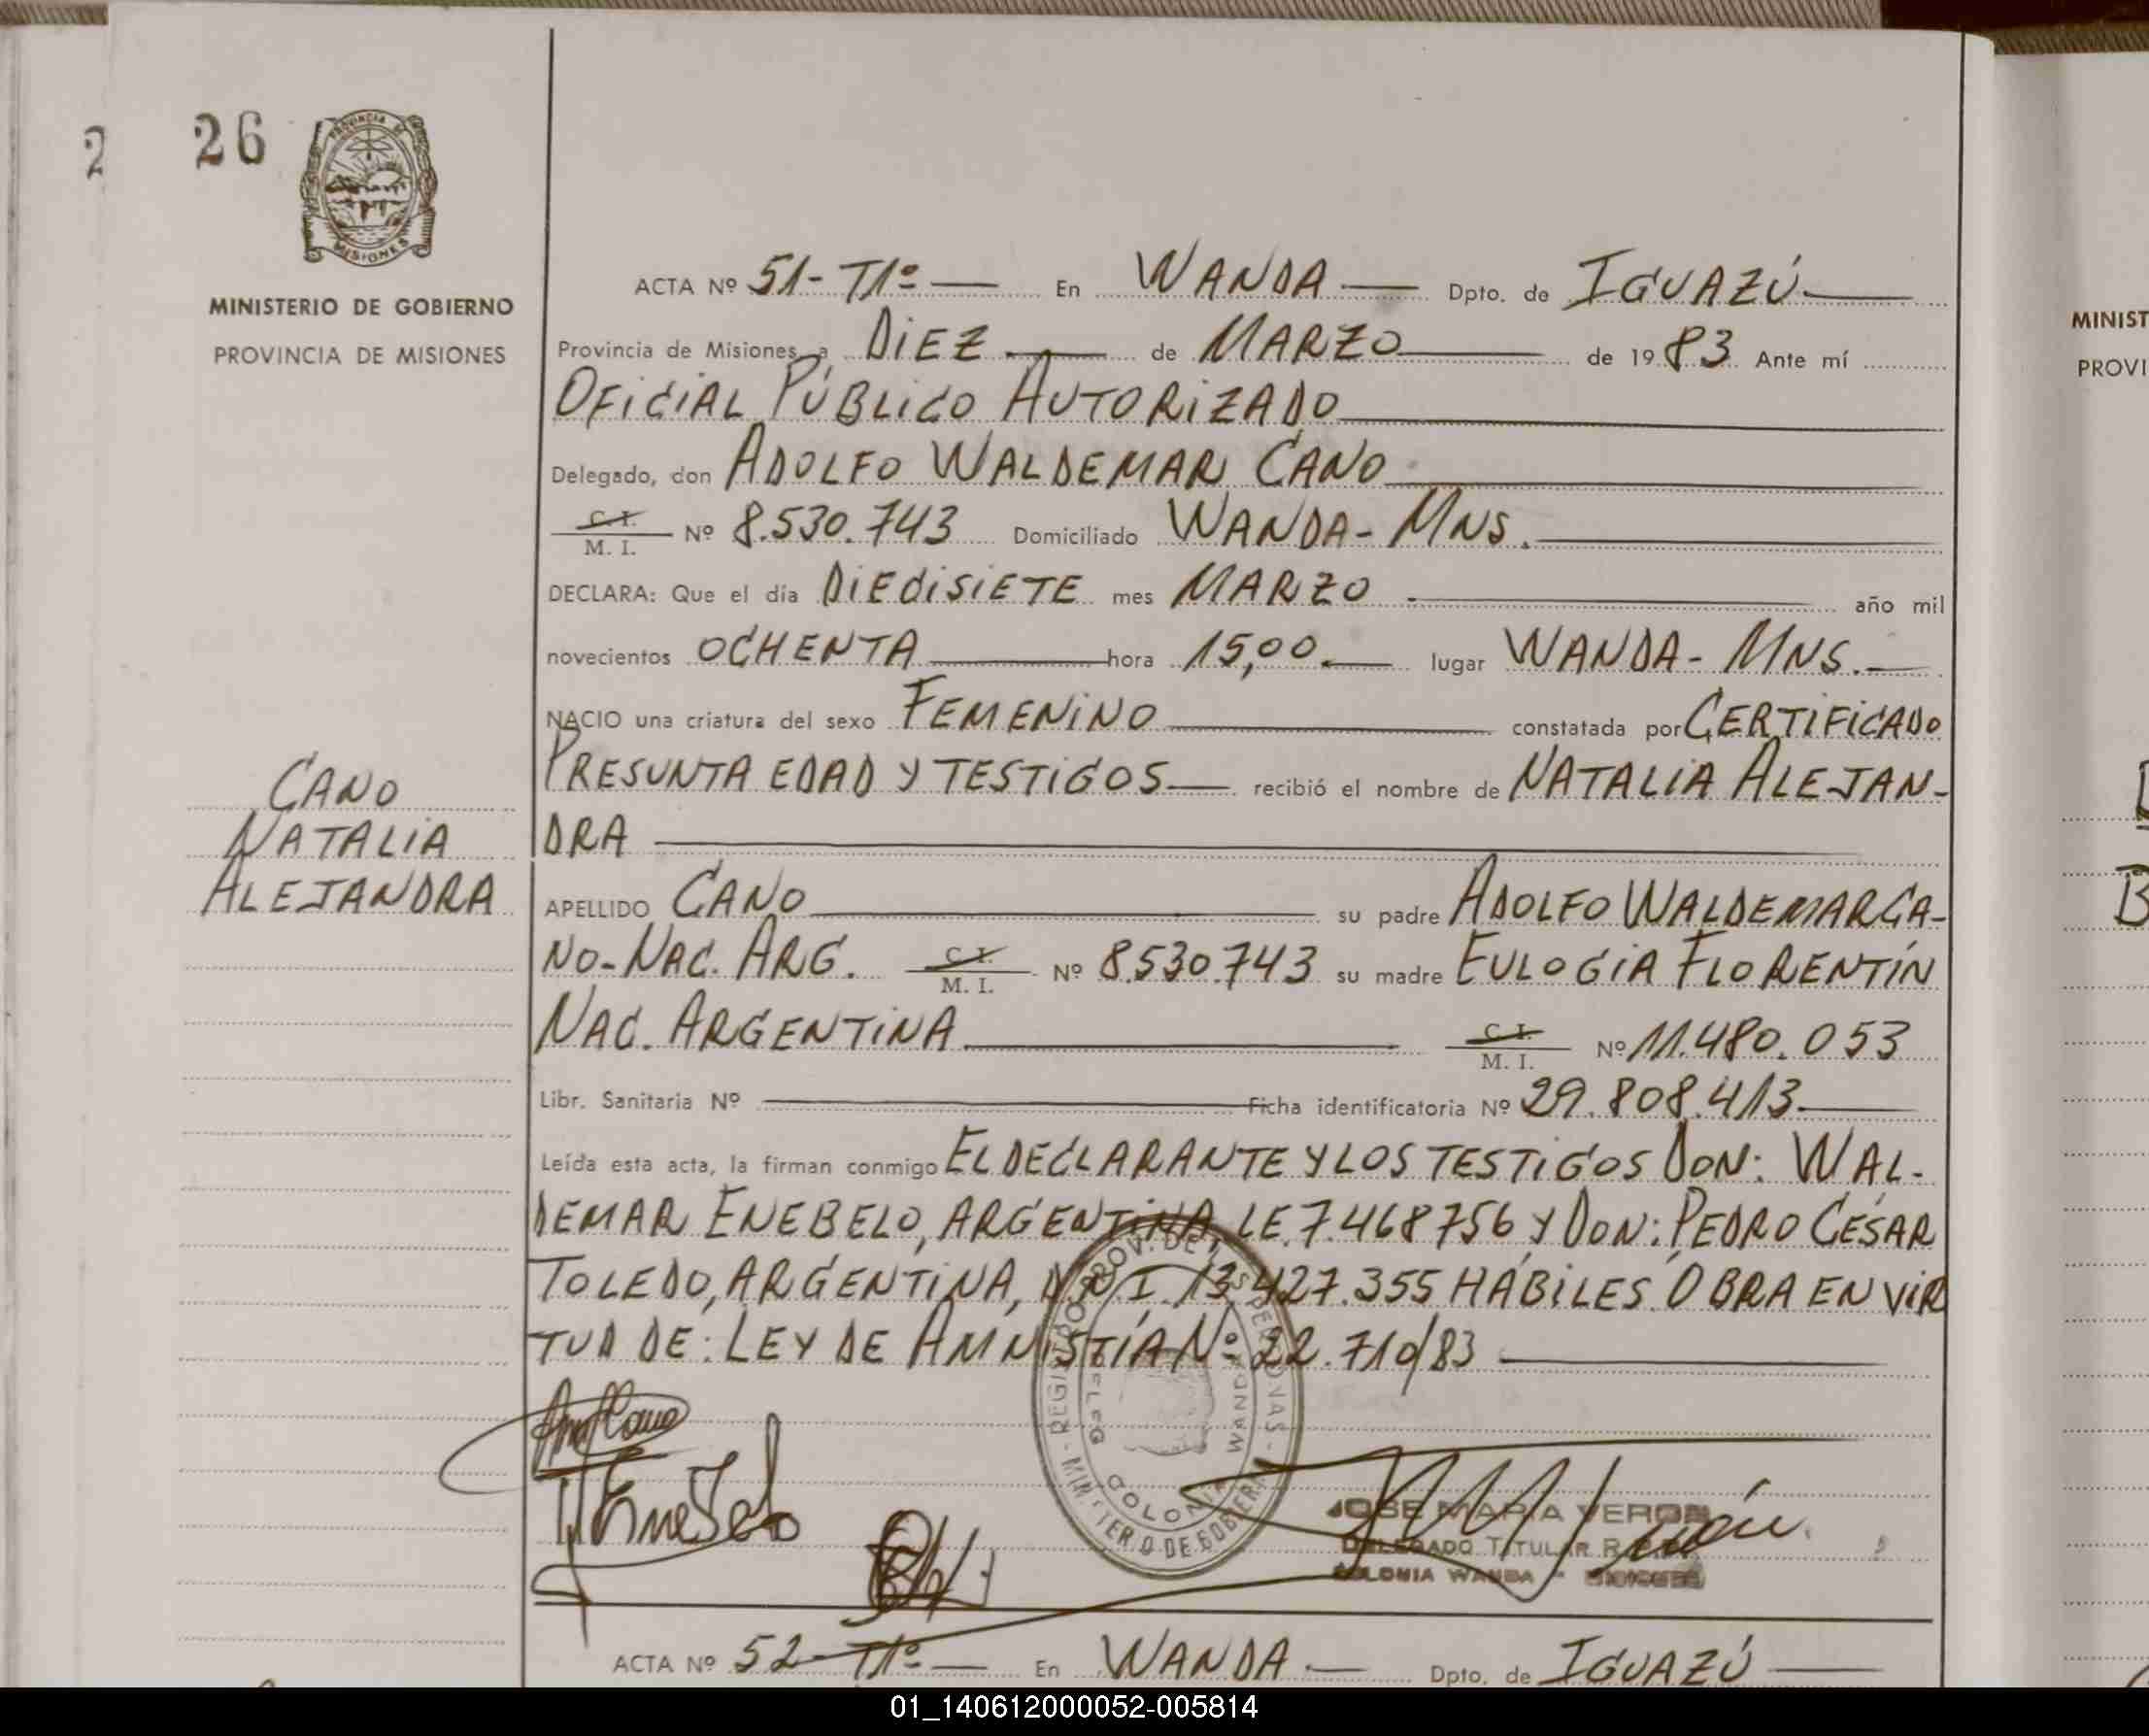 2 26
PROVINCIA DE
MISIONES
MINISTERIO DE GOBIERNO
PROVINCIA DE MISIONES
CANO
NATALIA
ALEJANDRA
ACTA Nº 51-T1º — En WANDA — Dpto. de IGUAZÚ
Provincia de Misiones, a DIEZ de MARZO de 1983 Ante mí
OFICIAL PÚBLICO AUTORIZADO
Delegado, don ADOLFO WALDEMAR CANO
C. I.
M. I. Nº 8.530.743 Domiciliado WANDA-MNS.
DECLARA: Que el día DIEDISIETE mes MARZO año mil
novecientos OCHENTA hora 15,00 lugar WANDA-MNS.
NACIO una criatura del sexo FEMENINO constatada por CERTIFICADO
PRESUNTA EDAD Y TESTIGOS recibió el nombre de NATALIA ALEJAN-
DRA
APELLIDO CANO su padre ADOLFO WALDEMAR CA-
NO-NAC. ARG. C. I.
M. I. Nº 8.530.743 su madre EULOGIA FLORENTÍN
NAC. ARGENTINA C. I.
M. I. Nº 11.480.053
Libr. Sanitaria Nº Ficha identificatoria Nº 29.808.413
Leída esta acta, la firman conmigo EL DECLARANTE Y LOS TESTIGOS DON: WAL-
DEMAR ENEBELO, ARGENTINA, LE.7.468756 Y DON: PEDRO CÉSAR
TOLEDO, ARGENTINA, D.N.I. 13.427.355 HÁBILES. OBRA EN VIR
TUD DE: LEY DE AMNISTÍA Nº 22.710/83
COLONIA WANDA
MINISTERIO DE GOBIERNO
JOSE MARIA VERON
DELEGADO TITULAR
COLONIA WANDA - MISIONES
ACTA Nº 52-T1º — En WANDA — Dpto. de IGUAZÚ
MINIST
PROVI
B
01_140612000052-005814